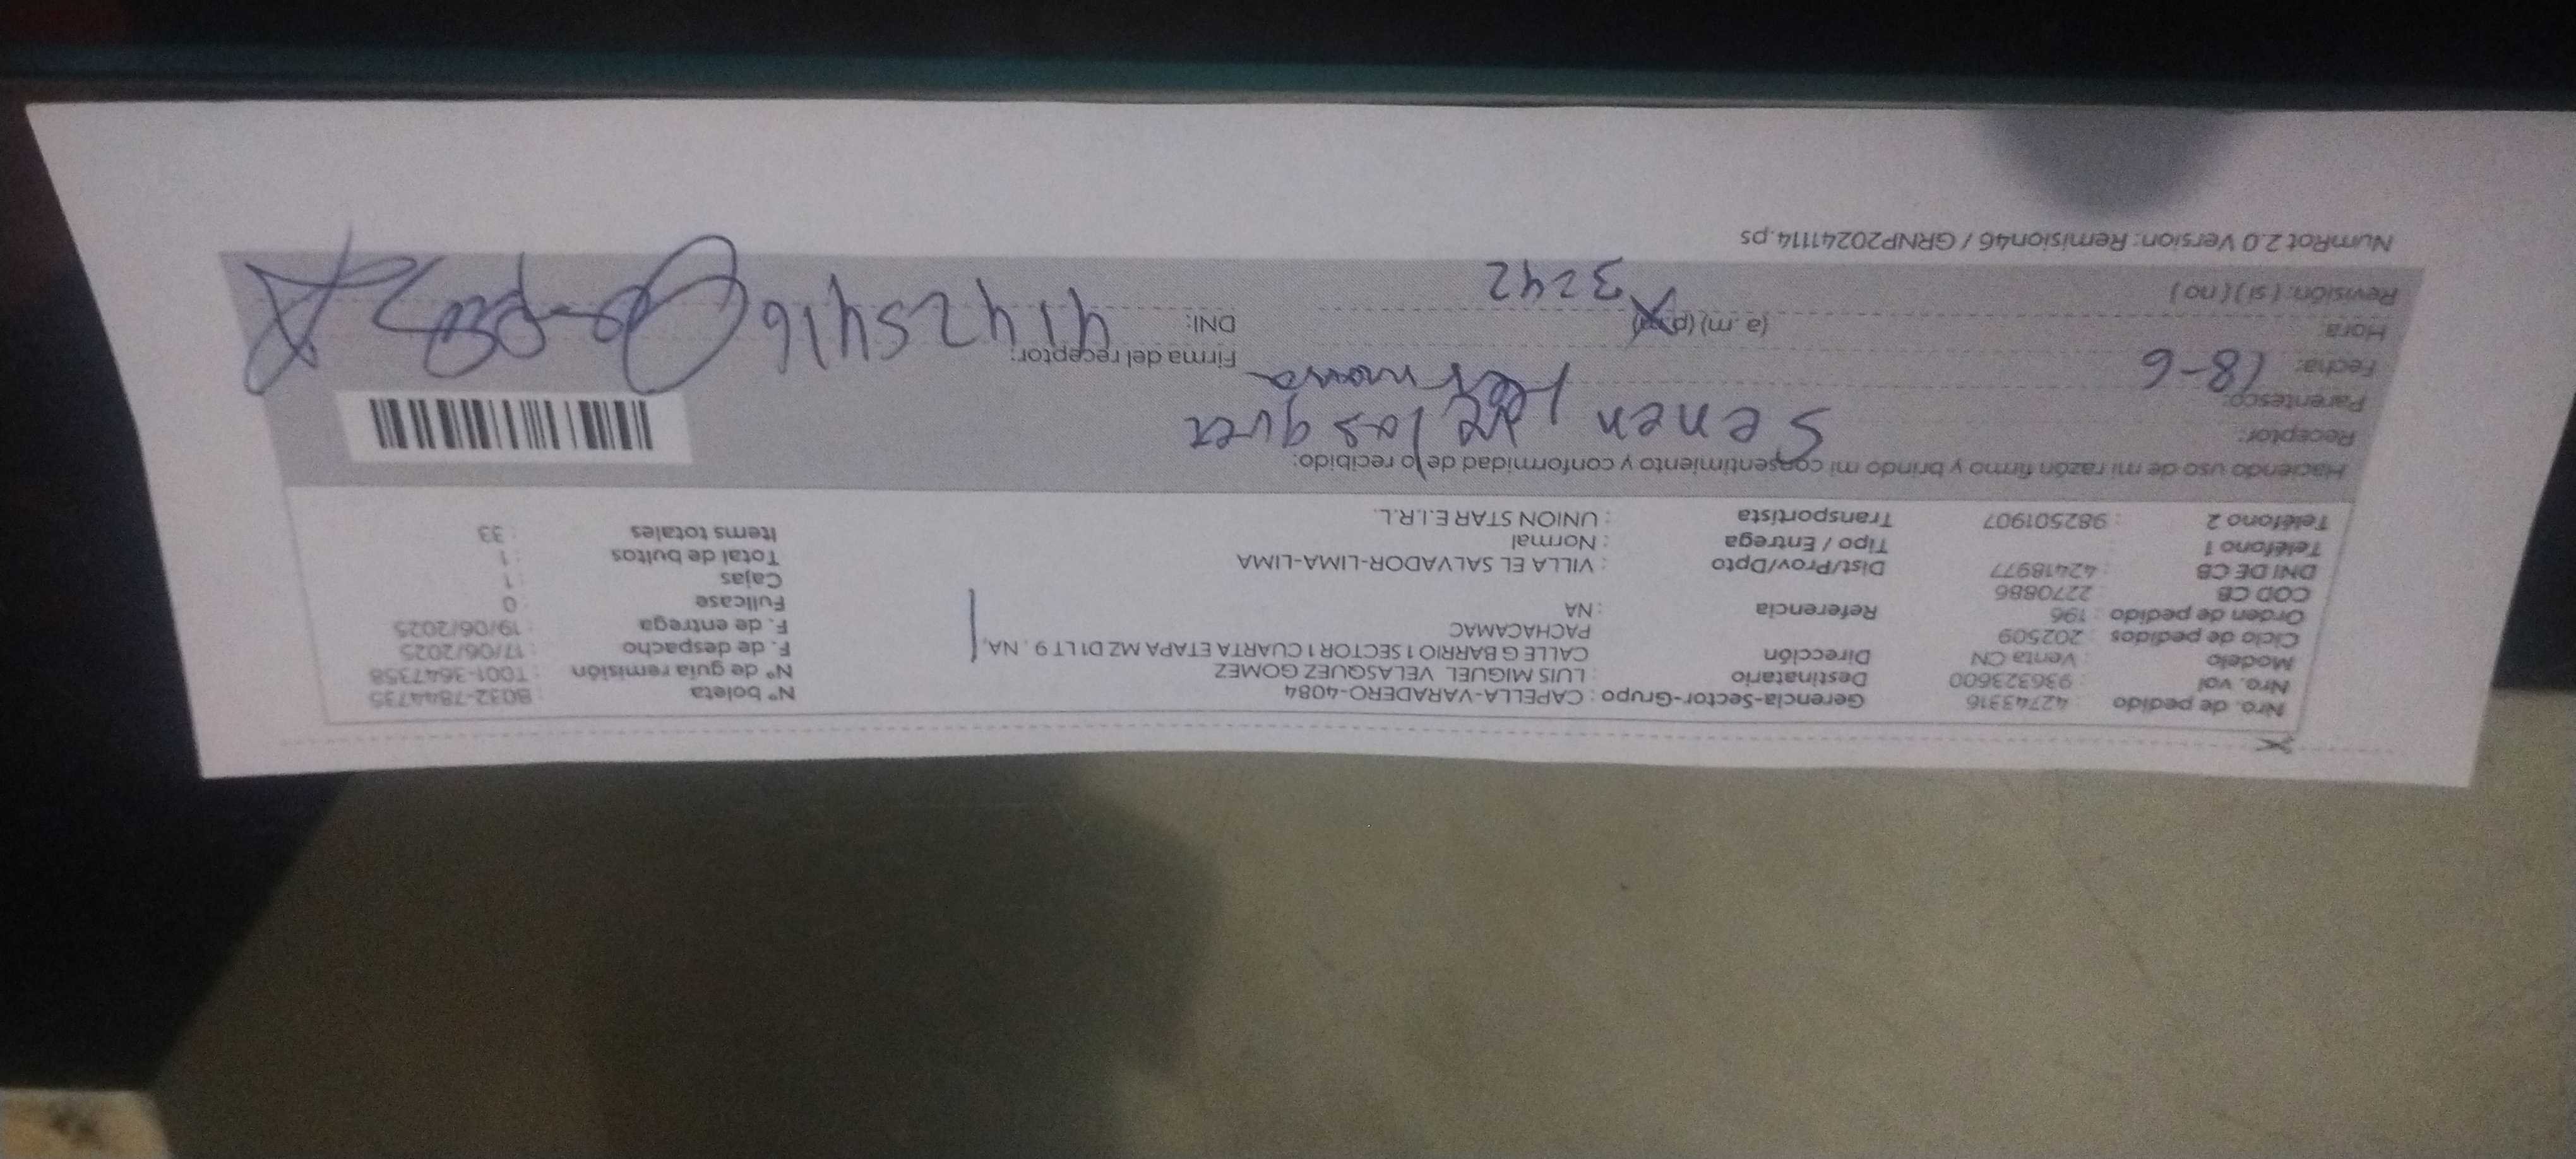 Nro. de pedido : 42743316 Gerencia-Sector-Grupo : CAPELLA-VARADERO-4084 N° boleta : B032-7844735
Nro. vol : 936323600 Destinatario : LUIS MIGUEL VELASQUEZ GOMEZ N° de guía remisión : T001-3647358
Modelo : Venta CN Dirección CALLE G BARRIO 1 SECTOR 1 CUARTA ETAPA MZ D1 LT 9 , NA, F. de despacho : 17/06/2025
Ciclo de pedidos : 202509 PACHACAMAC F. de entrega : 19/06/2025
Orden de pedido : 196 Referencia : NA Fullcase : 0
COD CB : 2270886 Dist/Prov/Dpto : VILLA EL SALVADOR-LIMA-LIMA Cajas : 1
DNI DE CB : 42418977 Tipo / Entrega : Normal Total de bultos : 1
Teléfono 1 : Transportista : UNION STAR E.I.R.L. Items totales : 33
Teléfono 2 : 982501907
Haciendo uso de mi razón firmo y brindo mi consentimiento y conformidad de lo recibido:
Receptor: Senen
Parentesco: Hermano
Fecha: 18-6 Firma del receptor:
Hora: (a.m) (p.m) 3=42 DNI: 41425416
Revisión: (si) (no)
NumRot 2.0 Version: Remision46 / GRNP20241114.ps